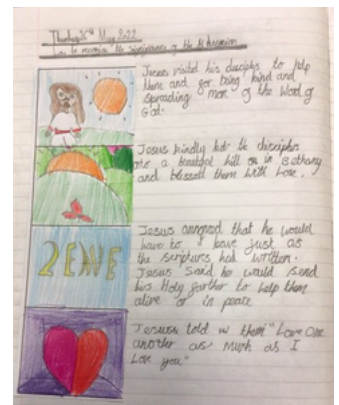 Thursday 26th May 2022
L.O. to recognise the significance of the Ascension
Jesus visited his disciples to help
them and for being kind and
spreading more of the Word of
God.
Jesus kindly the disciples
to a beautiful hill in Bethany
and blessed them with Love.
Jesus that he would
have to leave just as
the scriptures had written.
Jesus said he would send
his Holy to help them
alive or in peace
Jesus told them "Love One
another as much as I
Love you"